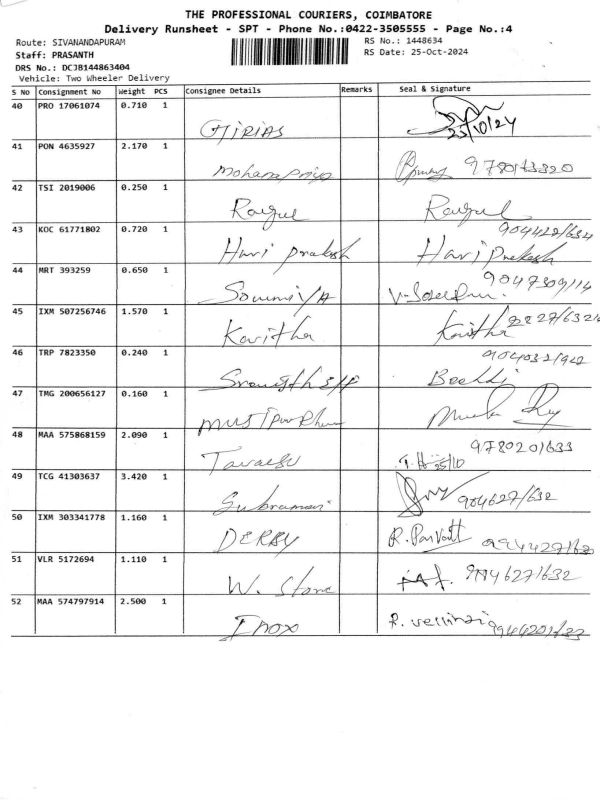 THE PROFESSIONAL COURIERS, COIMBATORE
Delivery Runsheet - SPT - Phone No.:0422-3505555 - Page No.:4
Route: SIVANANDAPURAM
RS No.: 1448634
Staff: PRASANTH
RS Date: 25-Oct-2024
DRS No.: DCJB144863404
Vehicle: Two Wheeler Delivery
S No Consignment No Weight PCS Consignee Details Remarks Seal & Signature
40 PRO 17061074 0.710 1
GIRIAS 25/10/24
41 PON 4635927 2.170 1
Mohanapriya
42 TSI 2019006 0.250 1
Ragul Ragul
43 KOC 61771802 0.720 1
Hari prakash Hari Prakash
44 MRT 393259 0.650 1
Sowmiya
45 IXM 507256746 1.570 1
Kavitha Kavitha
46 TRP 7823350 0.240 1
47 TMG 200656127 0.160 1
48 MAA 575868159 2.090 1
25/10
49 TCG 41303637 3.420 1
Subramani
50 IXM 303341778 1.160 1
DERBY
51 VLR 5172694 1.110 1
W. Stone
52 MAA 574797914 2.500 1
Inox